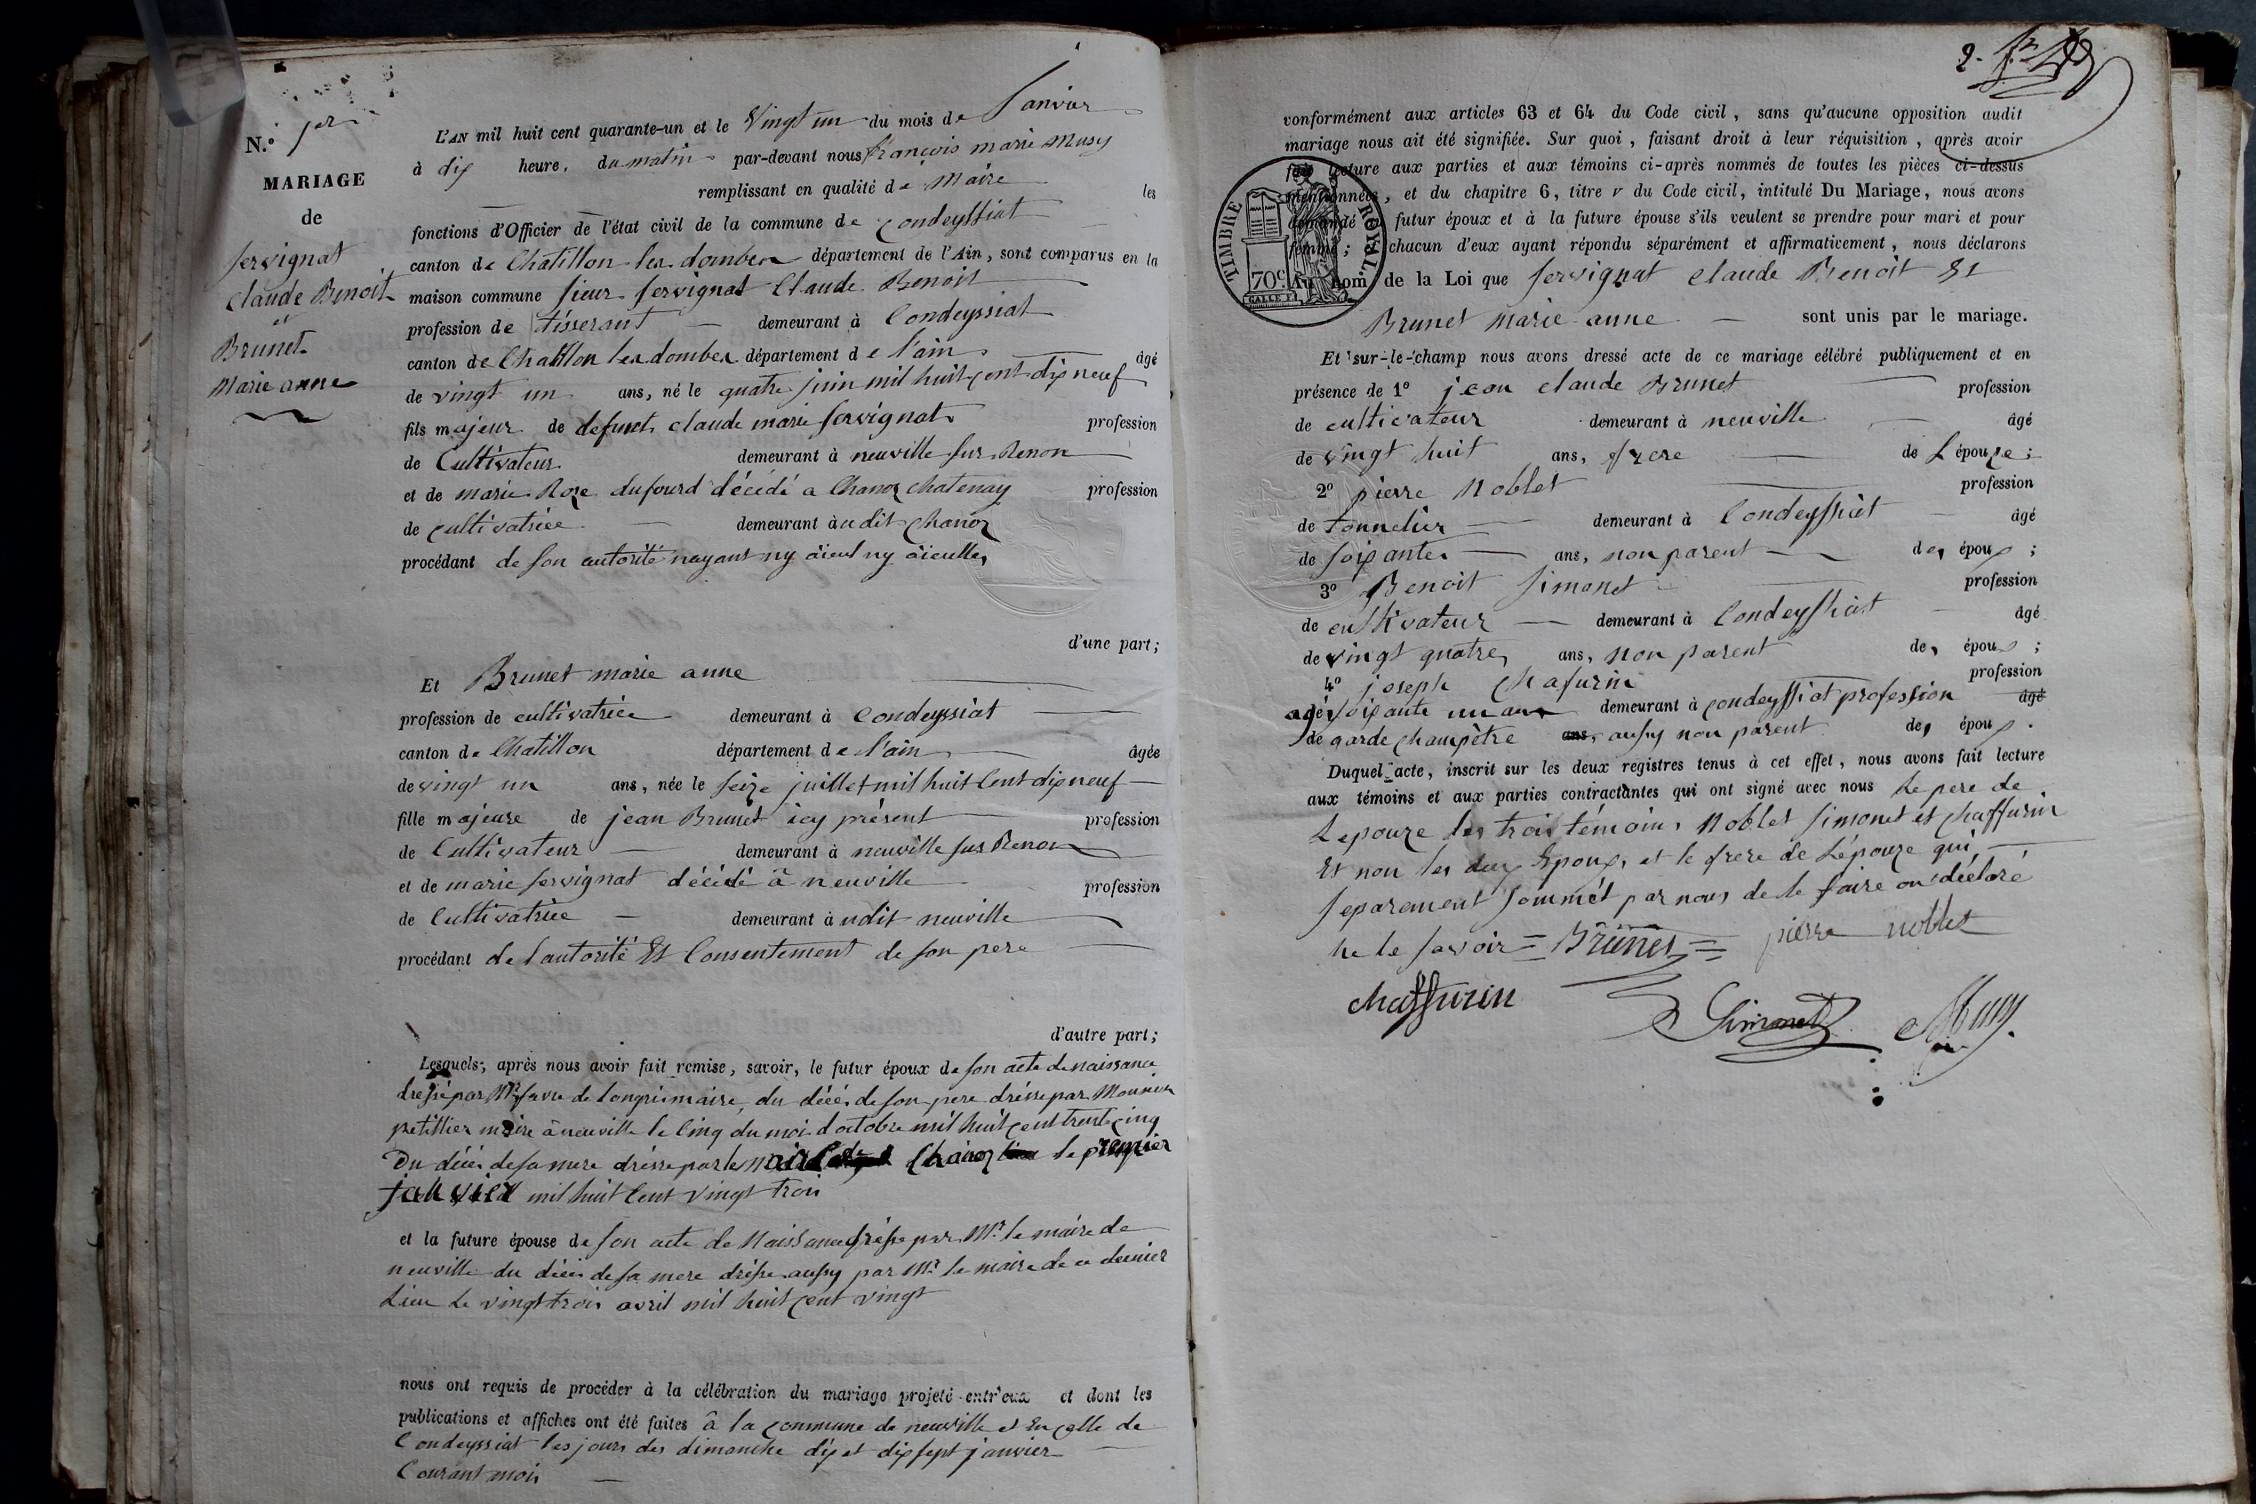 N.° 1er
MARIAGE
de
Servignat
Claude Benoit
et
Brunet
Marie anne
L'AN mil huit cent quarante-un et le Vingt un du mois de Janvier
à dix heure, du matin par-devant nous françois marie Musy
remplissant en qualité de Maire les
fonctions d'Officier de l'état civil de la commune de Condeyssiat
canton de Chatillon les dombes département de l'Ain, sont comparus en la
maison commune sieur Servignat Claude Benoit
profession de tisserant demeurant à Condeyssiat
canton de Chatillon les dombes département de l'ain âgé
de vingt un ans, né le quatre juin mil huit cent dix neuf
fils majeur de defunt claude marie Servignat profession
de Cultivateur demeurant à neuville sur Renon
et de marie Roze dufourd décédé a Chanoz chatenay profession
de cultivatrice demeurant àudit Chanoz
procédant de son autorité nayant ny àieul ny àieulle
d'une part;
Et Brunet marie anne
profession de cultivatrice demeurant à Condeyssiat
canton de Chatillon département de l'ain âgée
de vingt un ans, née le seize juillet mil huit Cent dix neuf
fille majeure de jean Brunet icy présent profession
de Cultivateur demeurant à neuville sur Renon
et de marie Servignat décédé à neuville profession
de Cultivatrice demeurant àudit neuville
procédant de l'autorité Et Consentement de son pere
d'autre part;
Lesquels, après nous avoir fait remise, savoir, le futur époux de son acte de naissance
dressé par Mr favre de longri maire, du décés de son pere drésse par Monsieur
petitlier maire à neuville le Cinq du mois d'octobre mil huit cent trente cinq
Du décés de sa mere drésse par le maire de Chanoz le premier
janvier mil huit Cent vingt trois
et la future épouse de son acte de Naissance drésse par Mr. le maire de
neuville du décés de sa mere drésse aussy par Mr. le maire de ce dernier
Lieu Le vingt trois avril mil huit cent vingt
nous ont requis de procéder à la célébration du mariage projeté entr'eux et dont les
publications et affiches ont été faites à la commune de neuville et En celle de
Condeyssiat les jours des dimanche dix et dix sept janvier
Courant mois
2.
conformément aux articles 63 et 64 du Code civil, sans qu'aucune opposition audit
mariage nous ait été signifiée. Sur quoi, faisant droit à leur réquisition, après avoir
fait lecture aux parties et aux témoins ci-après nommés de toutes les pièces ci-dessus
mentionnées, et du chapitre 6, titre v du Code civil, intitulé Du Mariage, nous avons
demandé au futur époux et à la future épouse s'ils veulent se prendre pour mari et pour
femme; chacun d'eux ayant répondu séparément et affirmativement, nous déclarons
Au nom de la Loi que Servignat Claude Benoit Et
TIMBRE ROYAL.
70c.
Brunet Marie anne sont unis par le mariage.
Et sur-le-champ nous avons dressé acte de ce mariage célébré publiquement et en
présence de 1° jean claude Brunet profession
de cultivateur demeurant à neuville âgé
de vingt huit ans, frere de L'épouze;
2° pierre Noblet profession
de tonnelier demeurant à Condeyssiat âgé
de soixante ans, non parent des époux;
3° Benoit Simonet profession
de cultivateur demeurant à Condeyssiat âgé
de vingt quatre ans, non parent des époux;
4° joseph Chafurin profession
agé soixante un ans demeurant à condeyssiat profession âgé
de garde champètre ans, aussy non parent des époux.
Duquel acte, inscrit sur les deux registres tenus à cet effet, nous avons fait lecture
aux témoins et aux parties contractantes qui ont signé avec nous Le pere de
L'epouze les trois témoins Noblet Simonet et Chaffurin
Et non les deux Epoux, et le frere de L'épouze qui
separement sommét par nous de le faire on déclaré
ne le savoir = Brunet = pierre noblet
chaffurin
Simonet Musy.